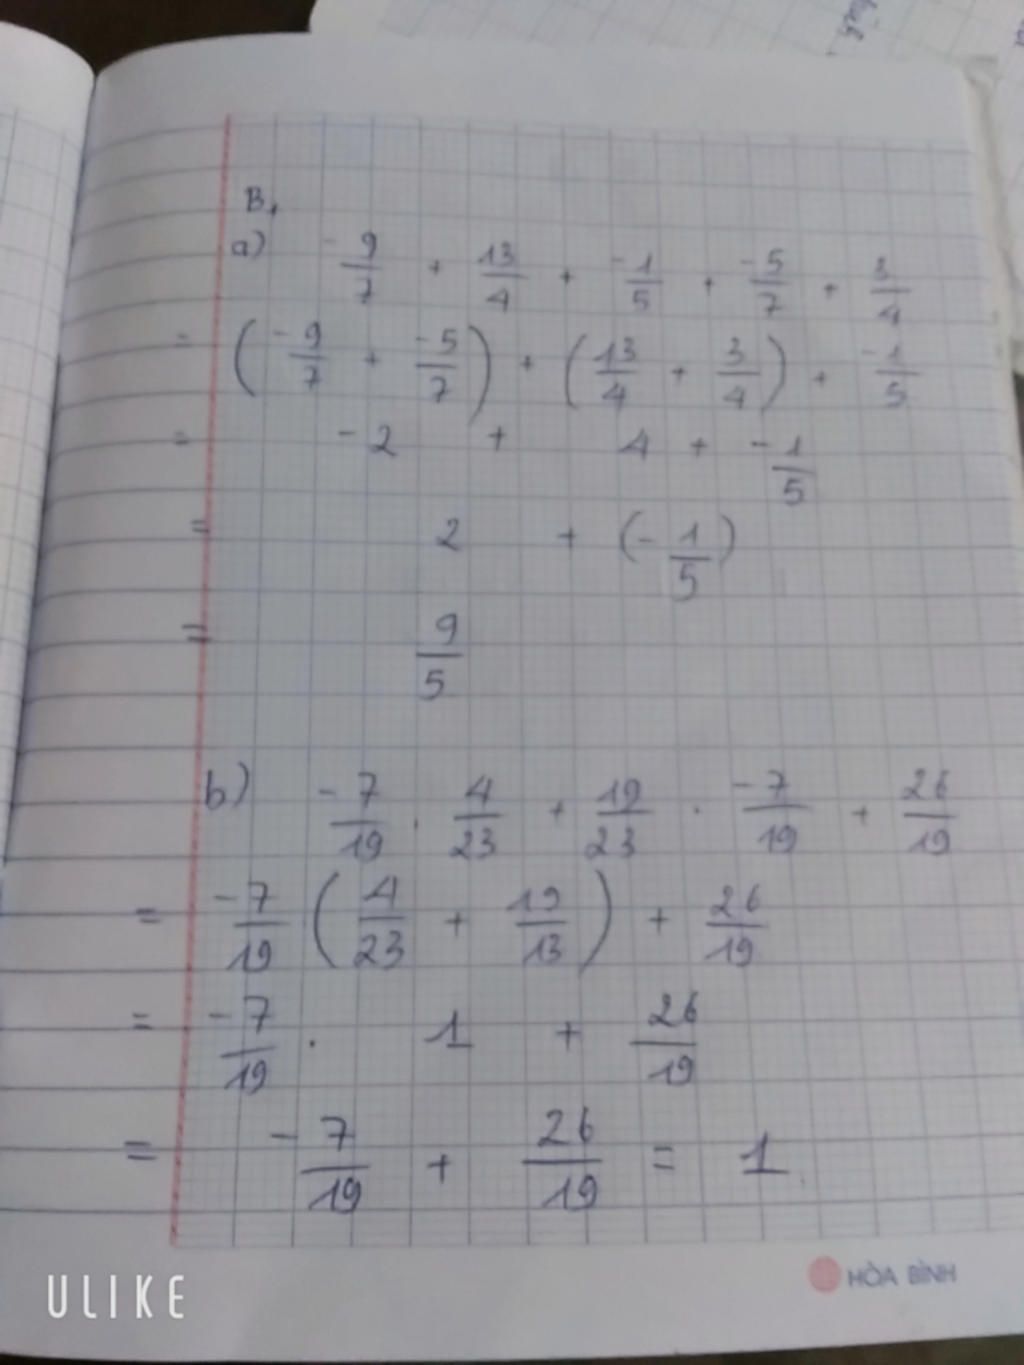 B,
a) -9/7 + 13/4 + -1/5 + -5/7 + 3/4
= (-9/7 + -5/7) + (13/4 + 3/4) + -1/5
= -2 + 4 + -1/5
= 2 + (-1/5)
= 9/5
b) -7/19 . 4/23 + 19/23 . -7/19 + 26/19
= -7/19 (4/23 + 19/13) + 26/19
= -7/19 . 1 + 26/19
= -7/19 + 26/19 = 1
HÒA BÌNH
ULIKE